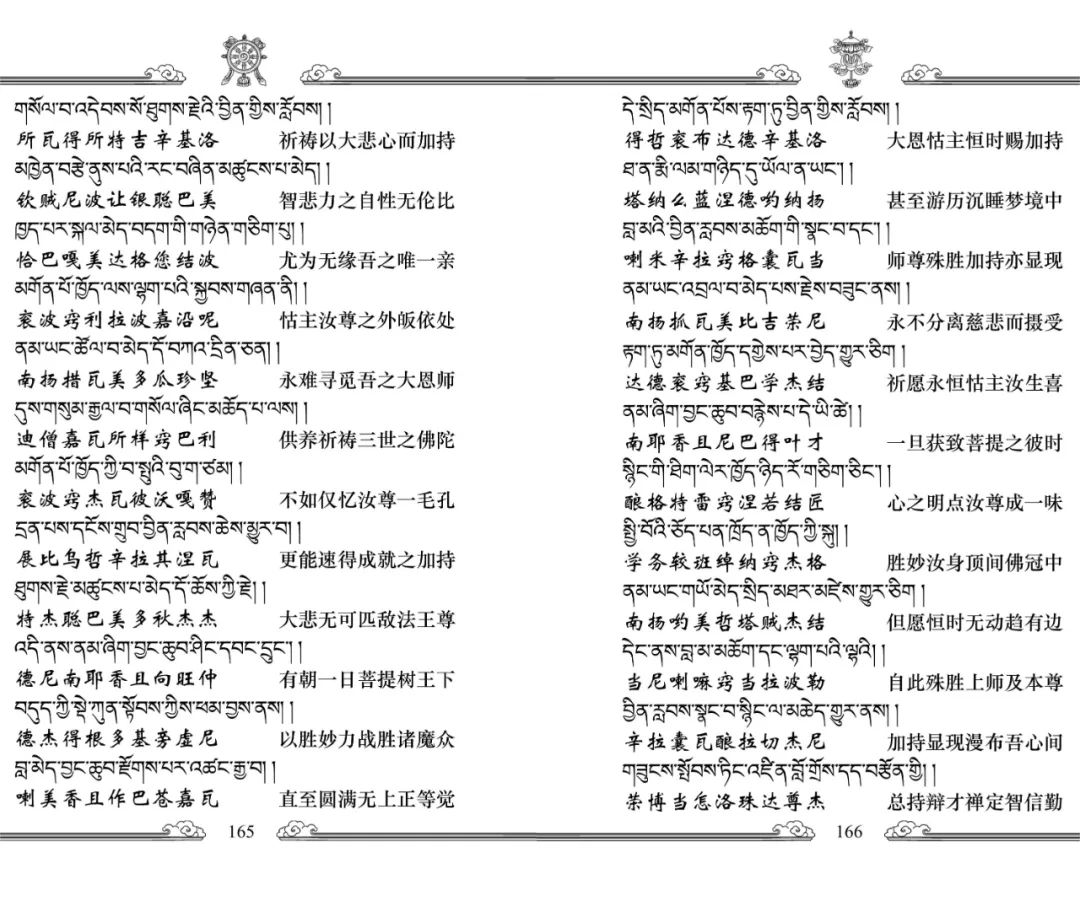 གསོལ་བ་འདེབས་སོ་ཐུགས་རྗེའི་བྱིན་གྱིས་རློབས། །
所瓦得所特吉辛基洛 祈祷以大悲心而加持
མཁྱེན་བརྩེ་ནུས་པའི་རང་བཞིན་མཚུངས་པ་མེད། །
钦贼尼波让银聪巴美 智悲力之自性无伦比
ཁྱད་པར་སྐལ་མེད་བདག་གི་གཉེན་གཅིག་པུ། །
恰巴嘎美达格您结波 尤为无缘吾之唯一亲
མགོན་པོ་ཁྱོད་ལས་ལྷག་པའི་སྐྱབས་གཞན་ནི། །
衮波窍利拉波嘉沿呢 怙主汝尊之外皈依处
ནམ་ཡང་ཚོལ་བ་མེད་དོ་བཀའ་དྲིན་ཅན། །
南扬措瓦美多瓜珍坚 永难寻觅吾之大恩师
དུས་གསུམ་རྒྱལ་བ་གསོལ་ཞིང་མཆོད་པ་ལས། །
迪僧嘉瓦所样窍巴利 供养祈祷三世之佛陀
མགོན་པོ་ཁྱོད་ཀྱི་བ་སྤུའི་བུ་ག་ཙམ། །
衮波窍杰瓦彼沃嘎赞 不如仅忆汝尊一毛孔
དྲན་པས་དངོས་གྲུབ་བྱིན་རླབས་ཆེས་མྱུར་བ། །
展比乌哲辛拉其涅瓦 更能速得成就之加持
ཐུགས་རྗེ་མཚུངས་པ་མེད་དོ་ཆོས་ཀྱི་རྗེ། །
特杰聪巴美多秋杰杰 大悲无可匹敌法王尊
འདི་ནས་ནམ་ཞིག་བྱང་ཆུབ་ཤིང་དབང་དྲུང་། །
德尼南耶香且向旺仲 有朝一日菩提树王下
བདུད་ཀྱི་སྡེ་ཀུན་སྟོབས་ཀྱིས་ཕམ་བྱས་ནས། །
德杰得根多基旁虚尼 以胜妙力战胜诸魔众
བླ་མེད་བྱང་ཆུབ་རྫོགས་པར་འཚང་རྒྱ་བ། །
喇美香且作巴苍嘉瓦 直至圆满无上正等觉
165
དེ་སྲིད་མགོན་པོས་རྟག་ཏུ་བྱིན་གྱིས་རློབས། །
得哲衮布达德辛基洛 大恩怙主恒时赐加持
ཐ་ན་རྨི་ལམ་གཉིད་དུ་ཡོལ་ན་ཡང་། །
塔纳么蓝涅德哟纳扬 甚至游历沉睡梦境中
བླ་མའི་བྱིན་རླབས་མཆོག་གི་སྣང་བ་དང་། །
喇米辛拉窍格囊瓦当 师尊殊胜加持亦显现
ནམ་ཡང་འབྲལ་བ་མེད་པས་རྗེས་བཟུང་ནས། །
南扬抓瓦美比吉荣尼 永不分离慈悲而摄受
རྟག་ཏུ་མགོན་ཁྱོད་དགྱེས་པར་བྱེད་གྱུར་ཅིག །
达德衮窍基巴学杰结 祈愿永恒怙主汝生喜
ནམ་ཞིག་བྱང་ཆུབ་བརྙེས་པ་དེ་ཡི་ཚེ། །
南耶香且尼巴得叶才 一旦获致菩提之彼时
སྙིང་གི་ཐིག་ལེར་ཁྱོད་ཉིད་རོ་གཅིག་ཅིང་། །
酿格特雷窍涅若结匠 心之明点汝尊成一味
སྤྱི་བོའི་ཅོད་པན་ཁྲོད་ན་ཁྱོད་ཀྱི་སྐུ། །
学务较班绰纳窍杰格 胜妙汝身顶间佛冠中
ནམ་ཡང་གཡོ་མེད་སྲིད་མཐར་མཛེས་གྱུར་ཅིག །
南扬哟美哲塔贼杰结 但愿恒时无动趋有边
དེང་ནས་བླ་མ་མཆོག་དང་ལྷག་པའི་ལྷའི། །
当尼喇嘛窍当拉波勒 自此殊胜上师及本尊
བྱིན་རླབས་སྣང་བ་སྙིང་ལ་མཆེད་གྱུར་ནས། །
辛拉囊瓦酿拉切杰尼 加持显现漫布吾心间
གཟུངས་སྤོབས་ཏིང་འཛིན་བློ་གྲོས་དད་བརྩོན་གྱི། །
荣博当怎洛珠达尊杰 总持辩才禅定智信勤
166